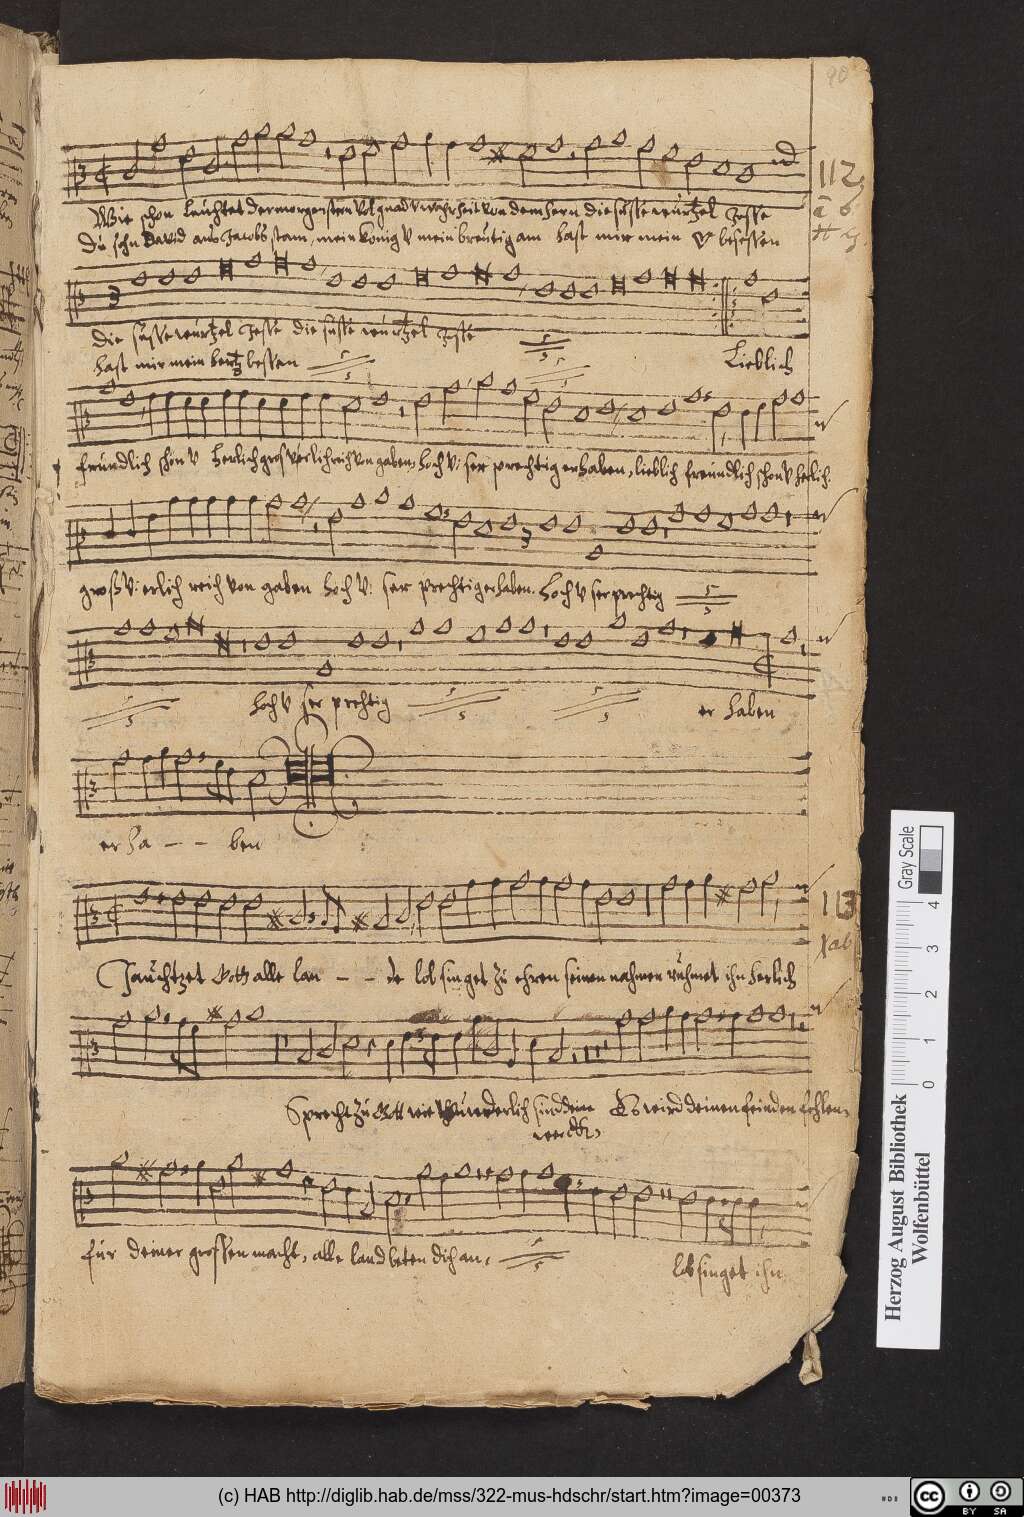 90
112
Wie schon leuchtet der morgenstern vol gnad v warheit von dem hern die süsse würtzel Jesse
Du sohn David aus Jacobs stam, mein konig v mein breutigam hast mir mein besessen
die süsse würtzel Jesse die süsse würtzel Jesse
hast mir mein hertz bessen
Lieblich
fründlich schon v herlich gros v erlich reich von gaben, hoch v: ser prechtig erhaben, lieblich freundlich schon v herlich.
groß v: erlich reich von gaben hoch v: ser prechtig erhaben. hoch v ser prechtig
hoch v ser prechtig
er haben
er ha - - ben
113
Jauchtzet Gott alle lan - - de lob singet zu ehren seinen nahmen rühmet ihn herlich
Sprecht zu Gott wie wunderlich sind deine Es wird deinen feinden fehlen,
wercke,
für deiner grossen macht, alle land beten dich an,
lobsinget ihn
Gray Scale
0 1 2 3 4
Herzog August Bibliothek
Wolfenbüttel
(c) HAB http://diglib.hab.de/mss/322-mus-hdschr/start.htm?image=00373
cc BY SA